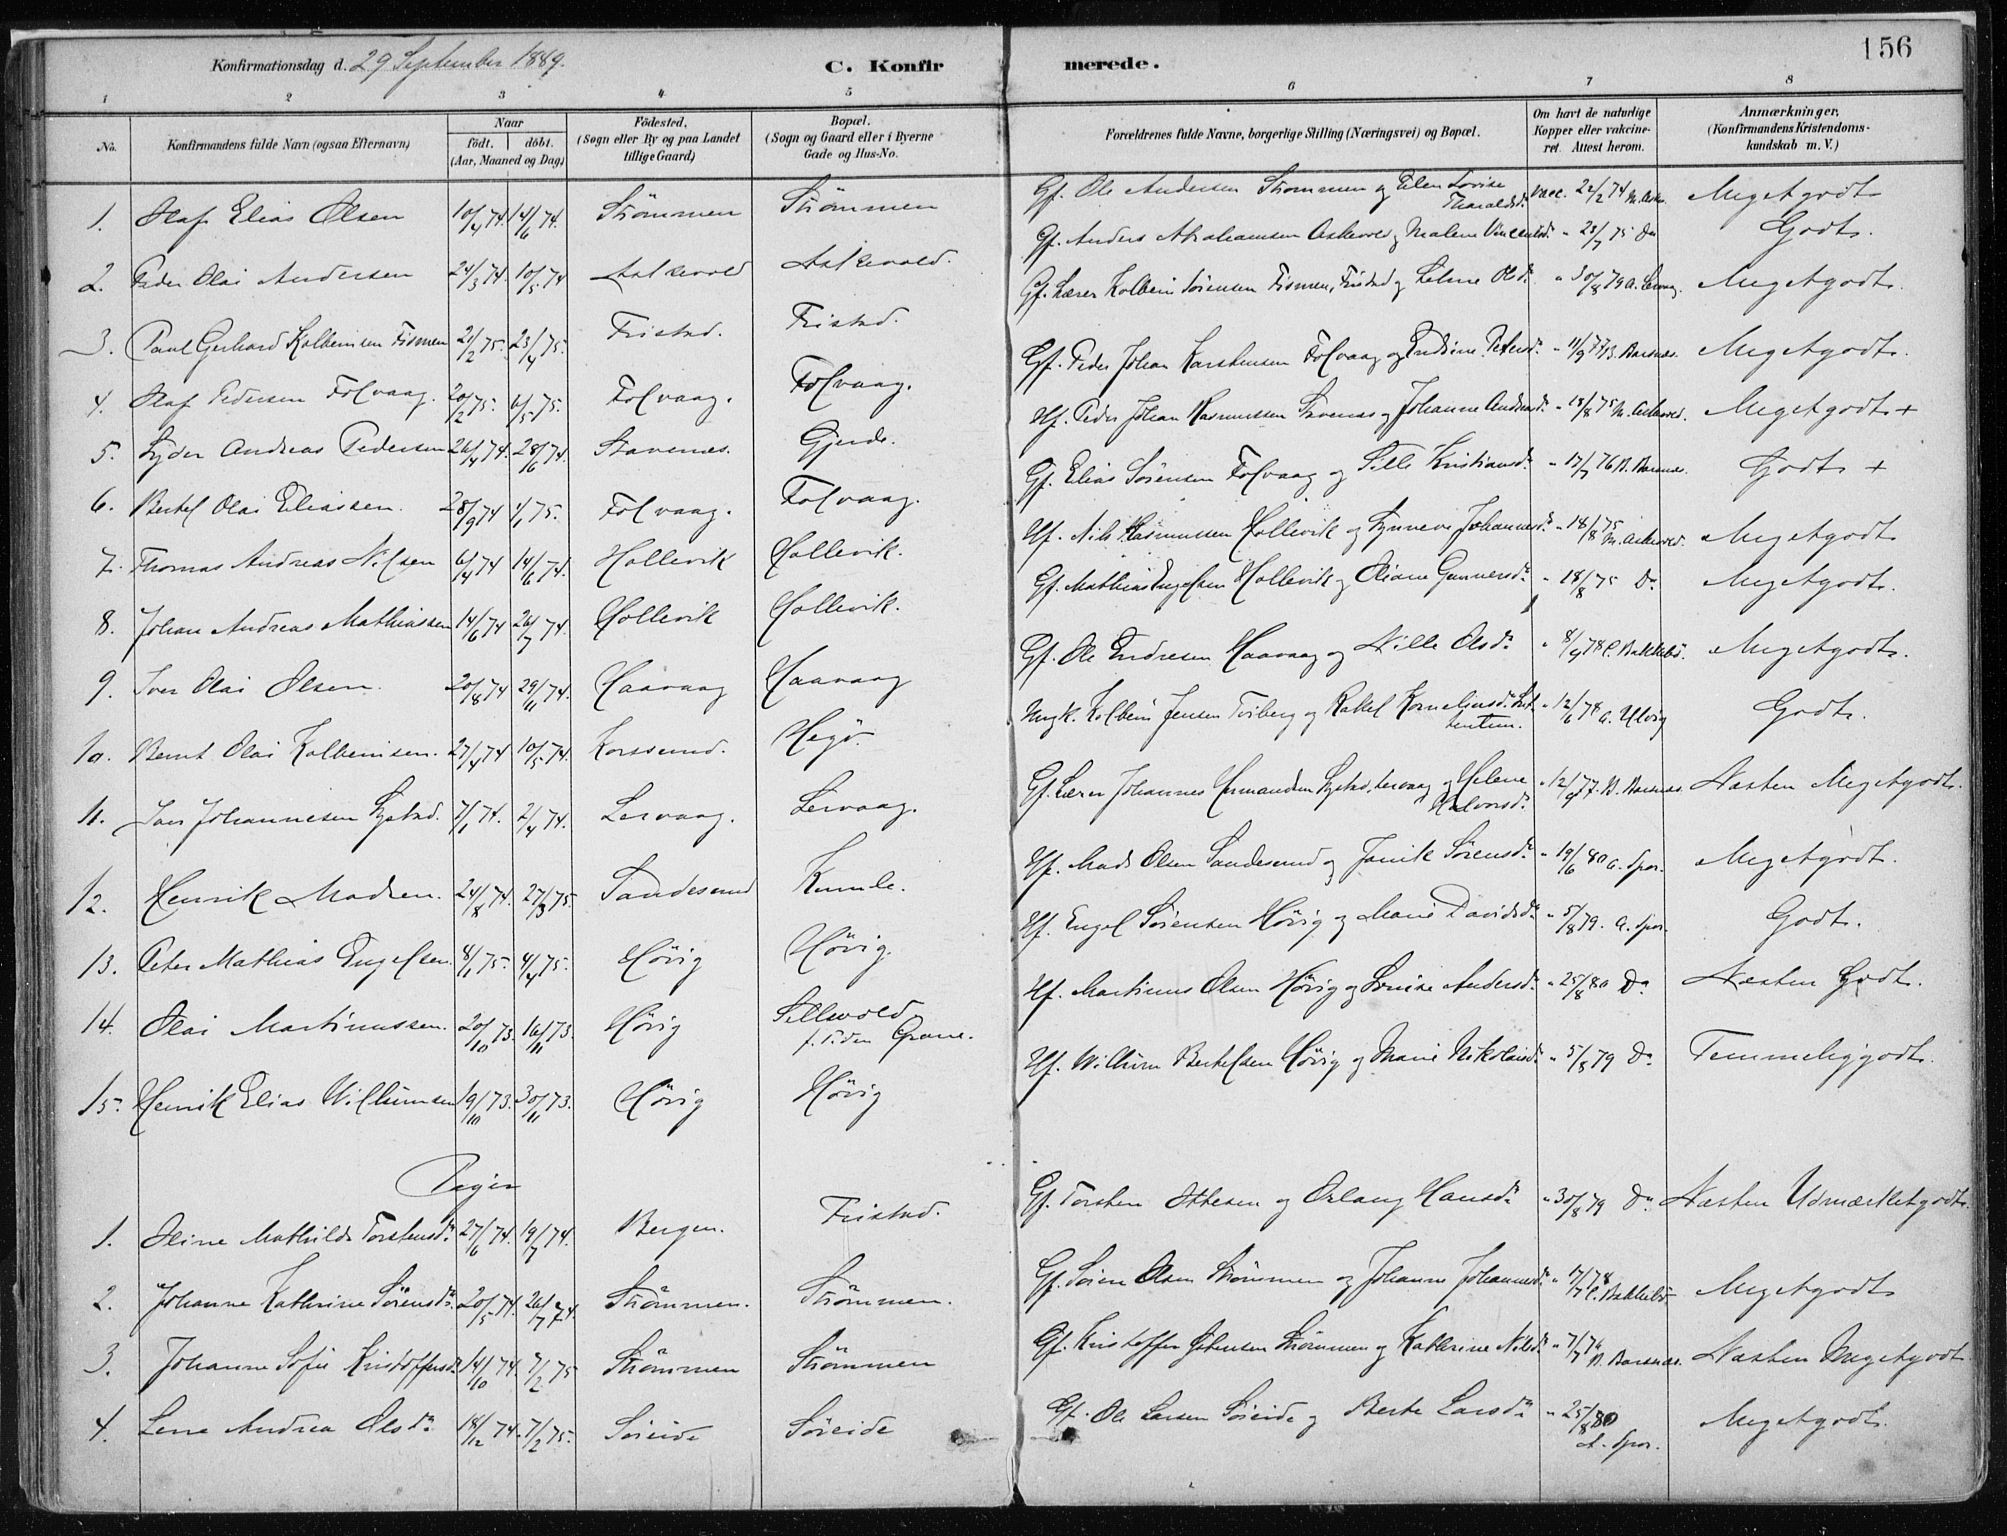 156
Konfirmationsdag d. 29 September 1889. C. Konfirmerede.
1 2 3 4 5 6 7 8
No. Konfirmandens fulde Navn (ogsaa Efternavn) Naar födt. döbt. (Aar, Maaned og Dag) Födested. (Sogn eller By og paa Landet tillige Gaard) Bopæl. (Sogn og Gaard eller i Byerne Gade og Hus-No. Forældrenes fulde Navne, borgerlige Stilling (Næringsvei) og Bopæl. Om havt de naturlige Kopper eller vakcineret. Attest herom. Anmærkninger, (Konfirmandens Kristendomskundskab m. V.)
1. Olaf Elias Olsen 10/4 74. 14/6 74. Strömmen Strömmen Gf. Ole Andersen Strömmen og Elen Lovise Tharaldsd. vacc. 22/2 74 M. Askv. Megetgodt
2. Peder Olai Andersen 24/3 74. 10/5 74 Askevold Askevold. Gf. Anders Abrahamsen Askevold og Malene Vincentsd. " 23/7 75 Do Godt.
3. Paul Gerhard Kolbeinsen Fismen 21/2 75. 23/4 75. Fristad. Fristad. Gf. Lærer Kolbein Sörensen Fismen, Fristad og Lelme Olsd. " 30/8 79 A. Megetgodt.
4. Olaf Pedersen Folvaag. 20/2 75. 6/5 75. Folvaag. Folvaag. Gf. Peder Johan Karstensen Folvaag og Endrine Petersd. " 11/9 77 B. Barsnes. Megetgodt.
5. Lyder Andreas Pedersen 26/4 74. 28/6 74. Stavenes. Gjerde. Hf. Peder Johan Rasmussen Stavenes og Johanne Andreasd. " 18/8 75 M. Askevold. Megetgodt +
6. Bertel Olai Eliassen. 28/9 74 1/1 75. Folvaag. Folvaag. Gf. Elias Sörensen Folvaag og Sille Kristiansd. " 17/7 76 B. Barsnes. Godt +
7. Thomas Andreas Nilsen 6/4 74 14/6 74. Hollevik Hollevik. Hf. Nils Rasmussen Hollevik og Synneve Johannesd. " 18/8 75 M. Askevold. Megetgodt
8. Johan Andreas Mathiassen 14/6 74 26/7 74. Hollevik Hollevik. Gf. Mathias Engelsen Hollevik og Oliane Gunnersd. " 18/8 75 Do Megetgodt.
9. Iver Olai Olsen. 20/8 74 29/11 74. Haavaag Haavaag Gf. Ole Endresen Haavaag og Nille Olsd. " 8/9 78 C. Bakkebö. Megetgodt.
10. Bernt Olai Kolbeinsen. 27/4 74 10/5 74. Korssund. Hegö. Ungk. Kolbein Jensen Tviberg og Rakel Korneliusd. " 12/6 78 A. Ulvig Godt.
11. Iver Johannesen Systad. 7/1 74. 2/4 74. Lervaag. Lervaag. Gf. Lærer Johannes Hermandsen Systad, Lervaag og Helene Halvorsd. " 12/9 77. B. Barsnes. Næsten Megetgodt.
12. Henrik Madsen. 24/8 74. 27/3 75. Sandesund Kumle. Hf. Mads Olsen Sandesund og Janik Sörensd. " 19/6 80 A. Spor. Megetgodt.
13. Peter Mathias Engelsen. 8/1 75. 4/4 75. Hövig Hövig. Hf. Engel Sörensen Hövig og Marie Davidsd. " 5/8 79. A. Spor. Godt.
14. Olai Martinussen. 20/10 73. 16/11 73 Hövig Sellevold f. Tiden Grane. Hf. Martinus Olsen Hövig og Lovise Andersd. " 25/8 80 Do Næsten Godt.
15. Henrik Elias Willumsen 19/10 73. 30/11 73. Hövig Hövig Hf. Willum Bertelsen Hövig og Marie Nikolaisd. " 5/8 79 Do Temmeliggodt.
Piger
1. Oline Mathilde Torstensd. 27/6 74. 19/7 74. Bergen. Fristad. Gf. Torsten Ottesen og Orlaug Hansd. " 30/8 79 Do Næsten Udmærketgodt.
2. Johanne Kathrine Sörensd. 20/5 74. 26/7 74. Strömmen. Strömmen. Gf. Sören Olsen Strömmen og Johanne Johannesd. " 17/7 78 C. Bakkebö. Megetgodt
3. Johanne Sofie Kristoffersd. 14/10 74. 7/2 75 Strömmen Strömmen Gf. Kristoffer Strömmen og Kathrine Nilsd. " 7/7 76 B. Barsnes. Næsten Megetgodt
4. Lene Andrea Olsd. 18/12 74. 7/2 75. Söreide Söreide Gf. Ole Larsen Söreide og Berte Larsd. " 25/8 80 A. Spor. Megetgodt.